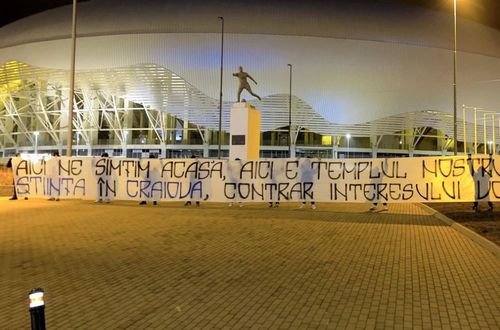 AICI NE SIMȚIM ACASĂ, AICI E TEMPLUL NOSTRU
ȘTIINȚA ÎN CRAIOVA, CONTRAR INTERESULUI